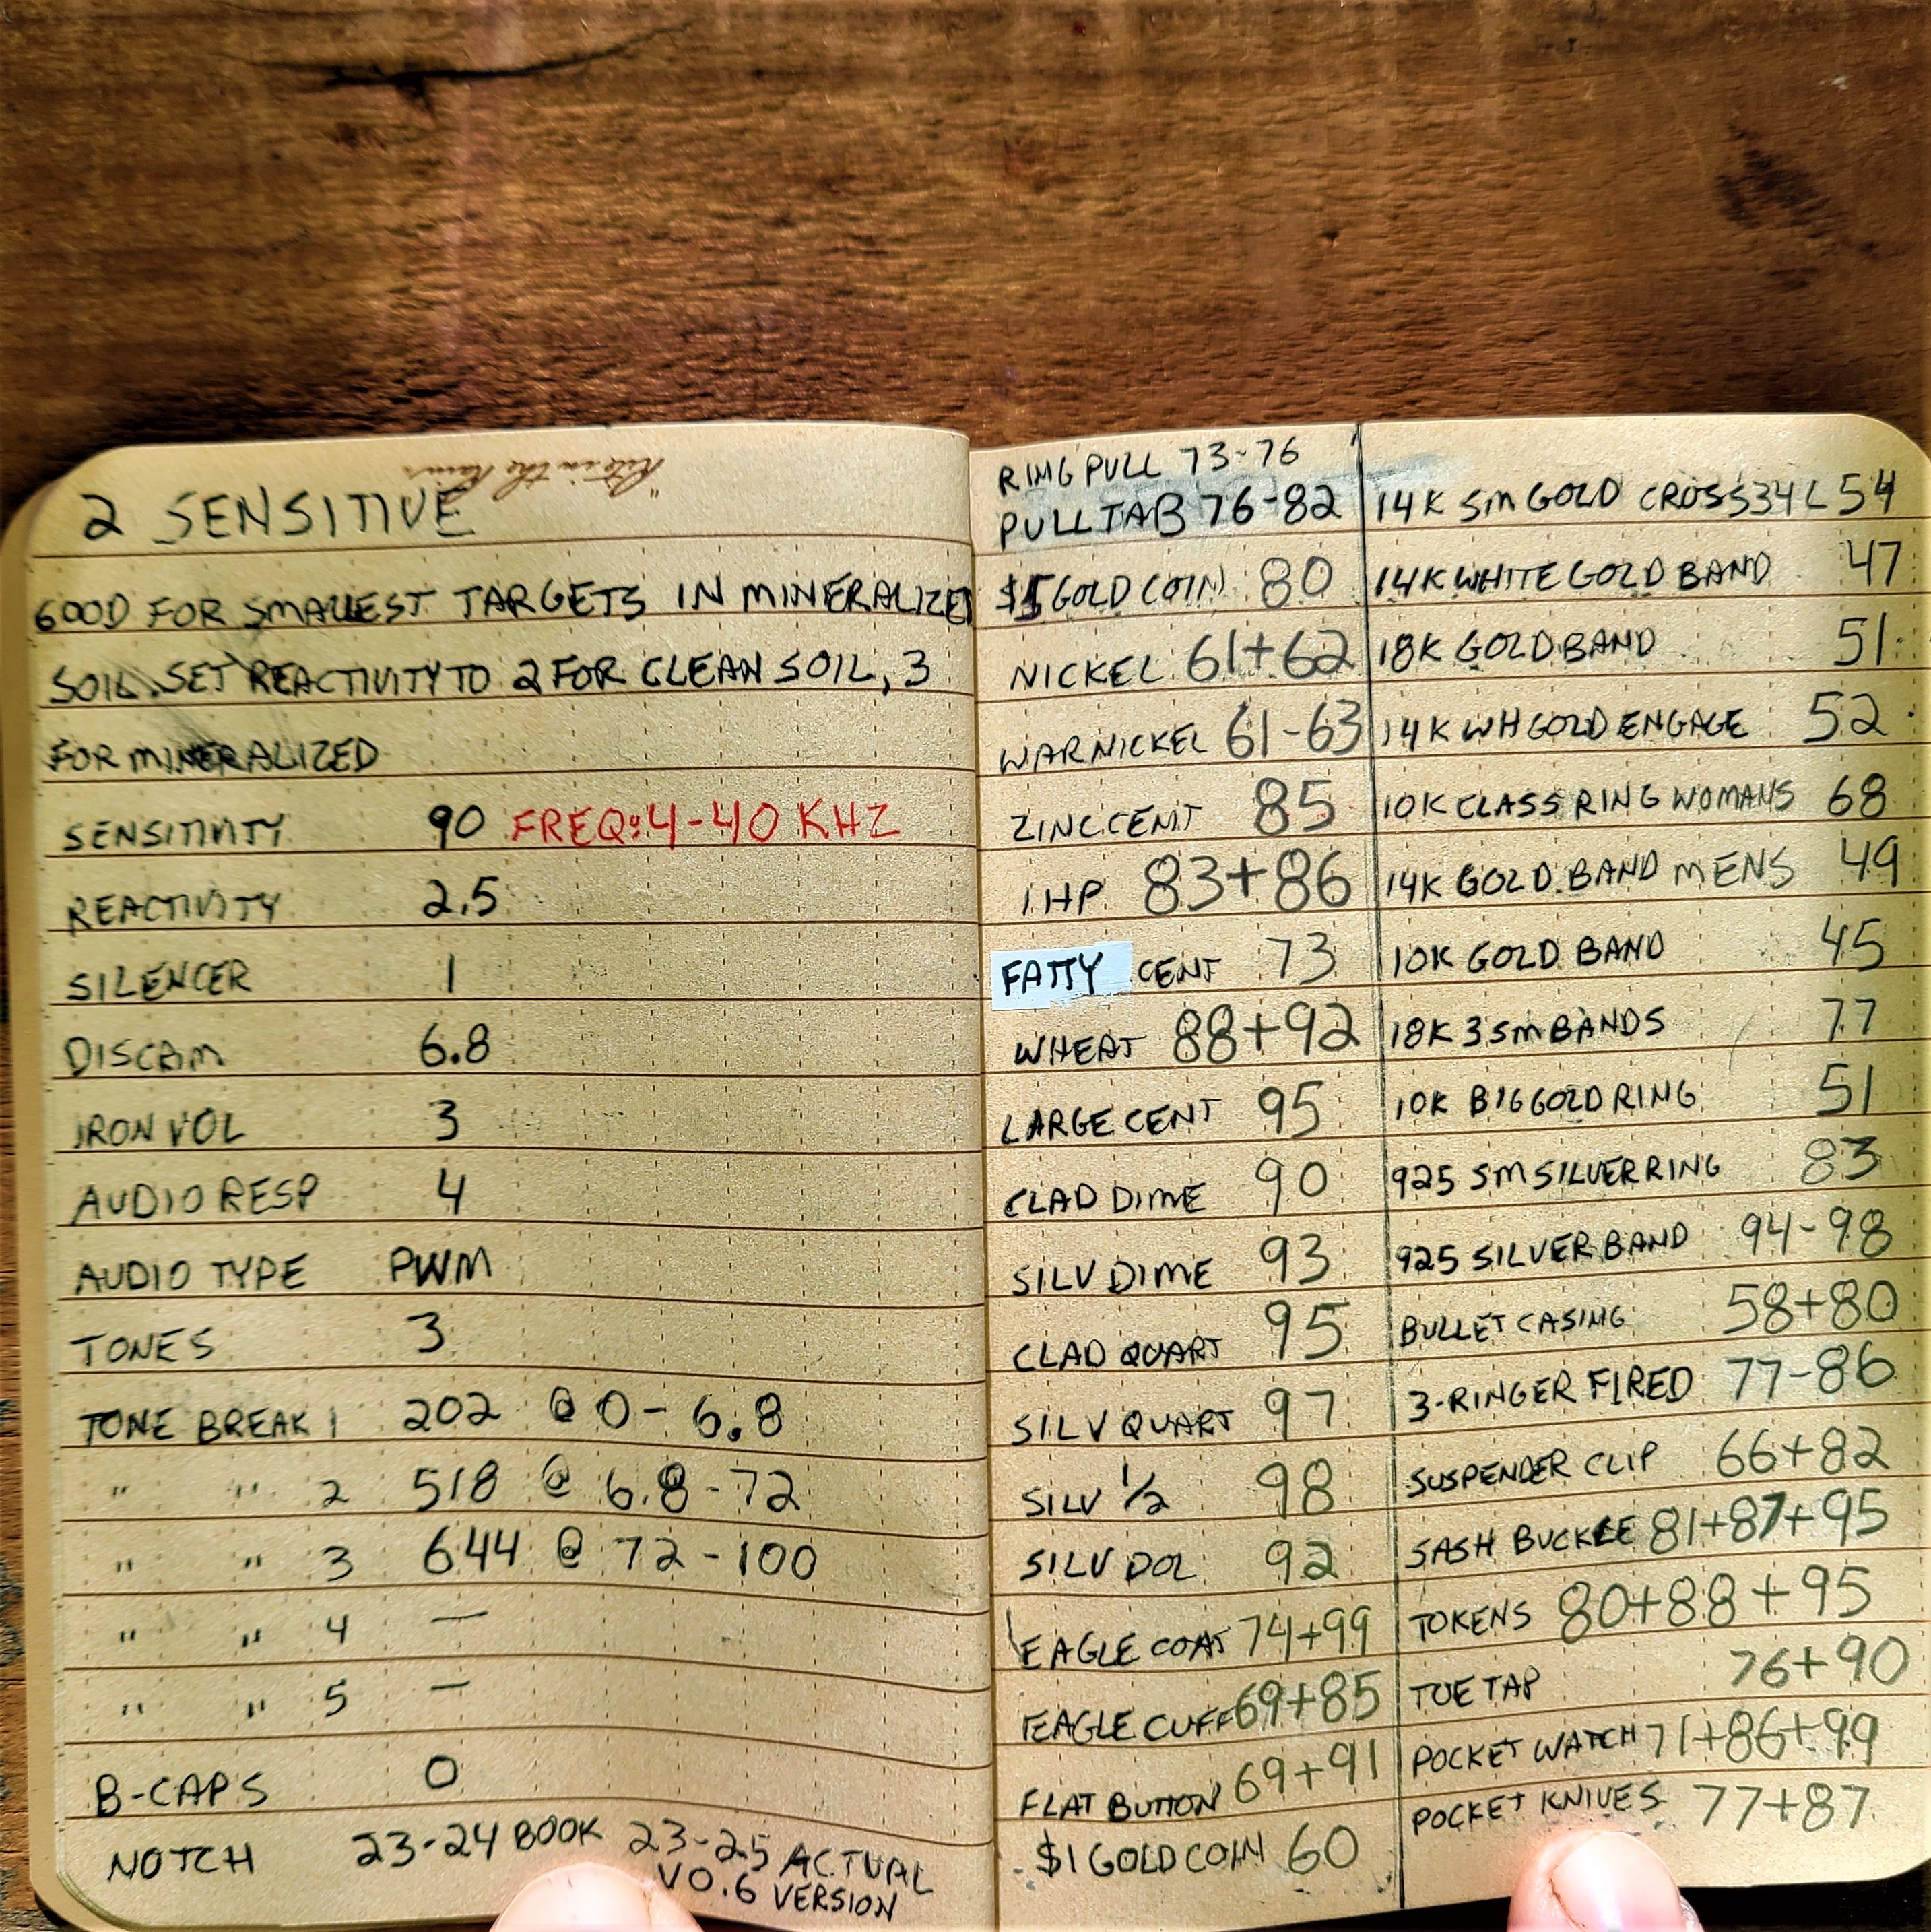 "Rite in the Rain"
2 SENSITIVE
GOOD FOR SMALLEST TARGETS IN MINERALIZED
SOIL. SET REACTIVITY TO 2 FOR CLEAN SOIL, 3
FOR MINERALIZED
SENSITIVITY 90 FREQ: 4-40 KHZ
REACTIVITY 2.5
SILENCER 1
DISCRIM 6.8
IRON VOL 3
AUDIO RESP 4
AUDIO TYPE PWM
TONES 3
TONE BREAK 1 202 @ 0 - 6.8
" " 2 518 @ 6.8 - 72
" " 3 644 @ 72 - 100
" " 4 —
" " 5 —
B-CAPS 0
NOTCH 23-24 BOOK 23-25 ACTUAL
V0.6 VERSION
RING PULL 73-76
PULLTAB 76-82
$5 GOLD COIN 80
NICKEL 61+62
WAR NICKEL 61-63
ZINC CENT 85
IHP 83+86
FATTY CENT 73
WHEAT 88+92
LARGE CENT 95
CLAD DIME 90
SILV DIME 93
CLAD QUART 95
SILV QUART 97
SILV 1/2 98
SILV DOL 92
EAGLE COAT 74+99
EAGLE CUFF 69+85
FLAT BUTTON 69+91
$1 GOLD COIN 60
14K SM GOLD CROSS 34L 54
14K WHITE GOLD BAND 47
18K GOLD BAND 51
14K WH GOLD ENGAGE 52
10K CLASS RING WOMANS 68
14K GOLD BAND MENS 49
10K GOLD BAND 45
18K 3 SM BANDS 77
10K BIG GOLD RING 51
925 SM SILVER RING 83
925 SILVER BAND 94-98
BULLET CASING 58+80
3-RINGER FIRED 77-86
SUSPENDER CLIP 66+82
SASH BUCKLE 81+87+95
TOKENS 80+88+95
TOE TAP 76+90
POCKET WATCH 71+86+99
POCKET KNIVES 77+87